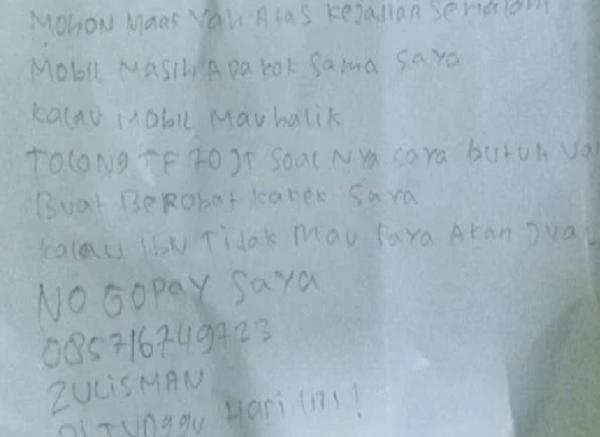 MOHON MAAF YAH ATAS KEJADIAN SEMALAM
MOBIL MASIH ADA KOK SAMA SAYA
KALAU MOBIL MAU BALIK
TOLONG TF 70 JT SOALNYA SAYA BUTUH
BUAT BEROBAT KAKEK SAYA
KALAU IBU TIDAK MAU SAYA AKAN JUAL
NO GOPAY SAYA
085716749723
ZULISMAN
DI TUNGGU HARI INI!